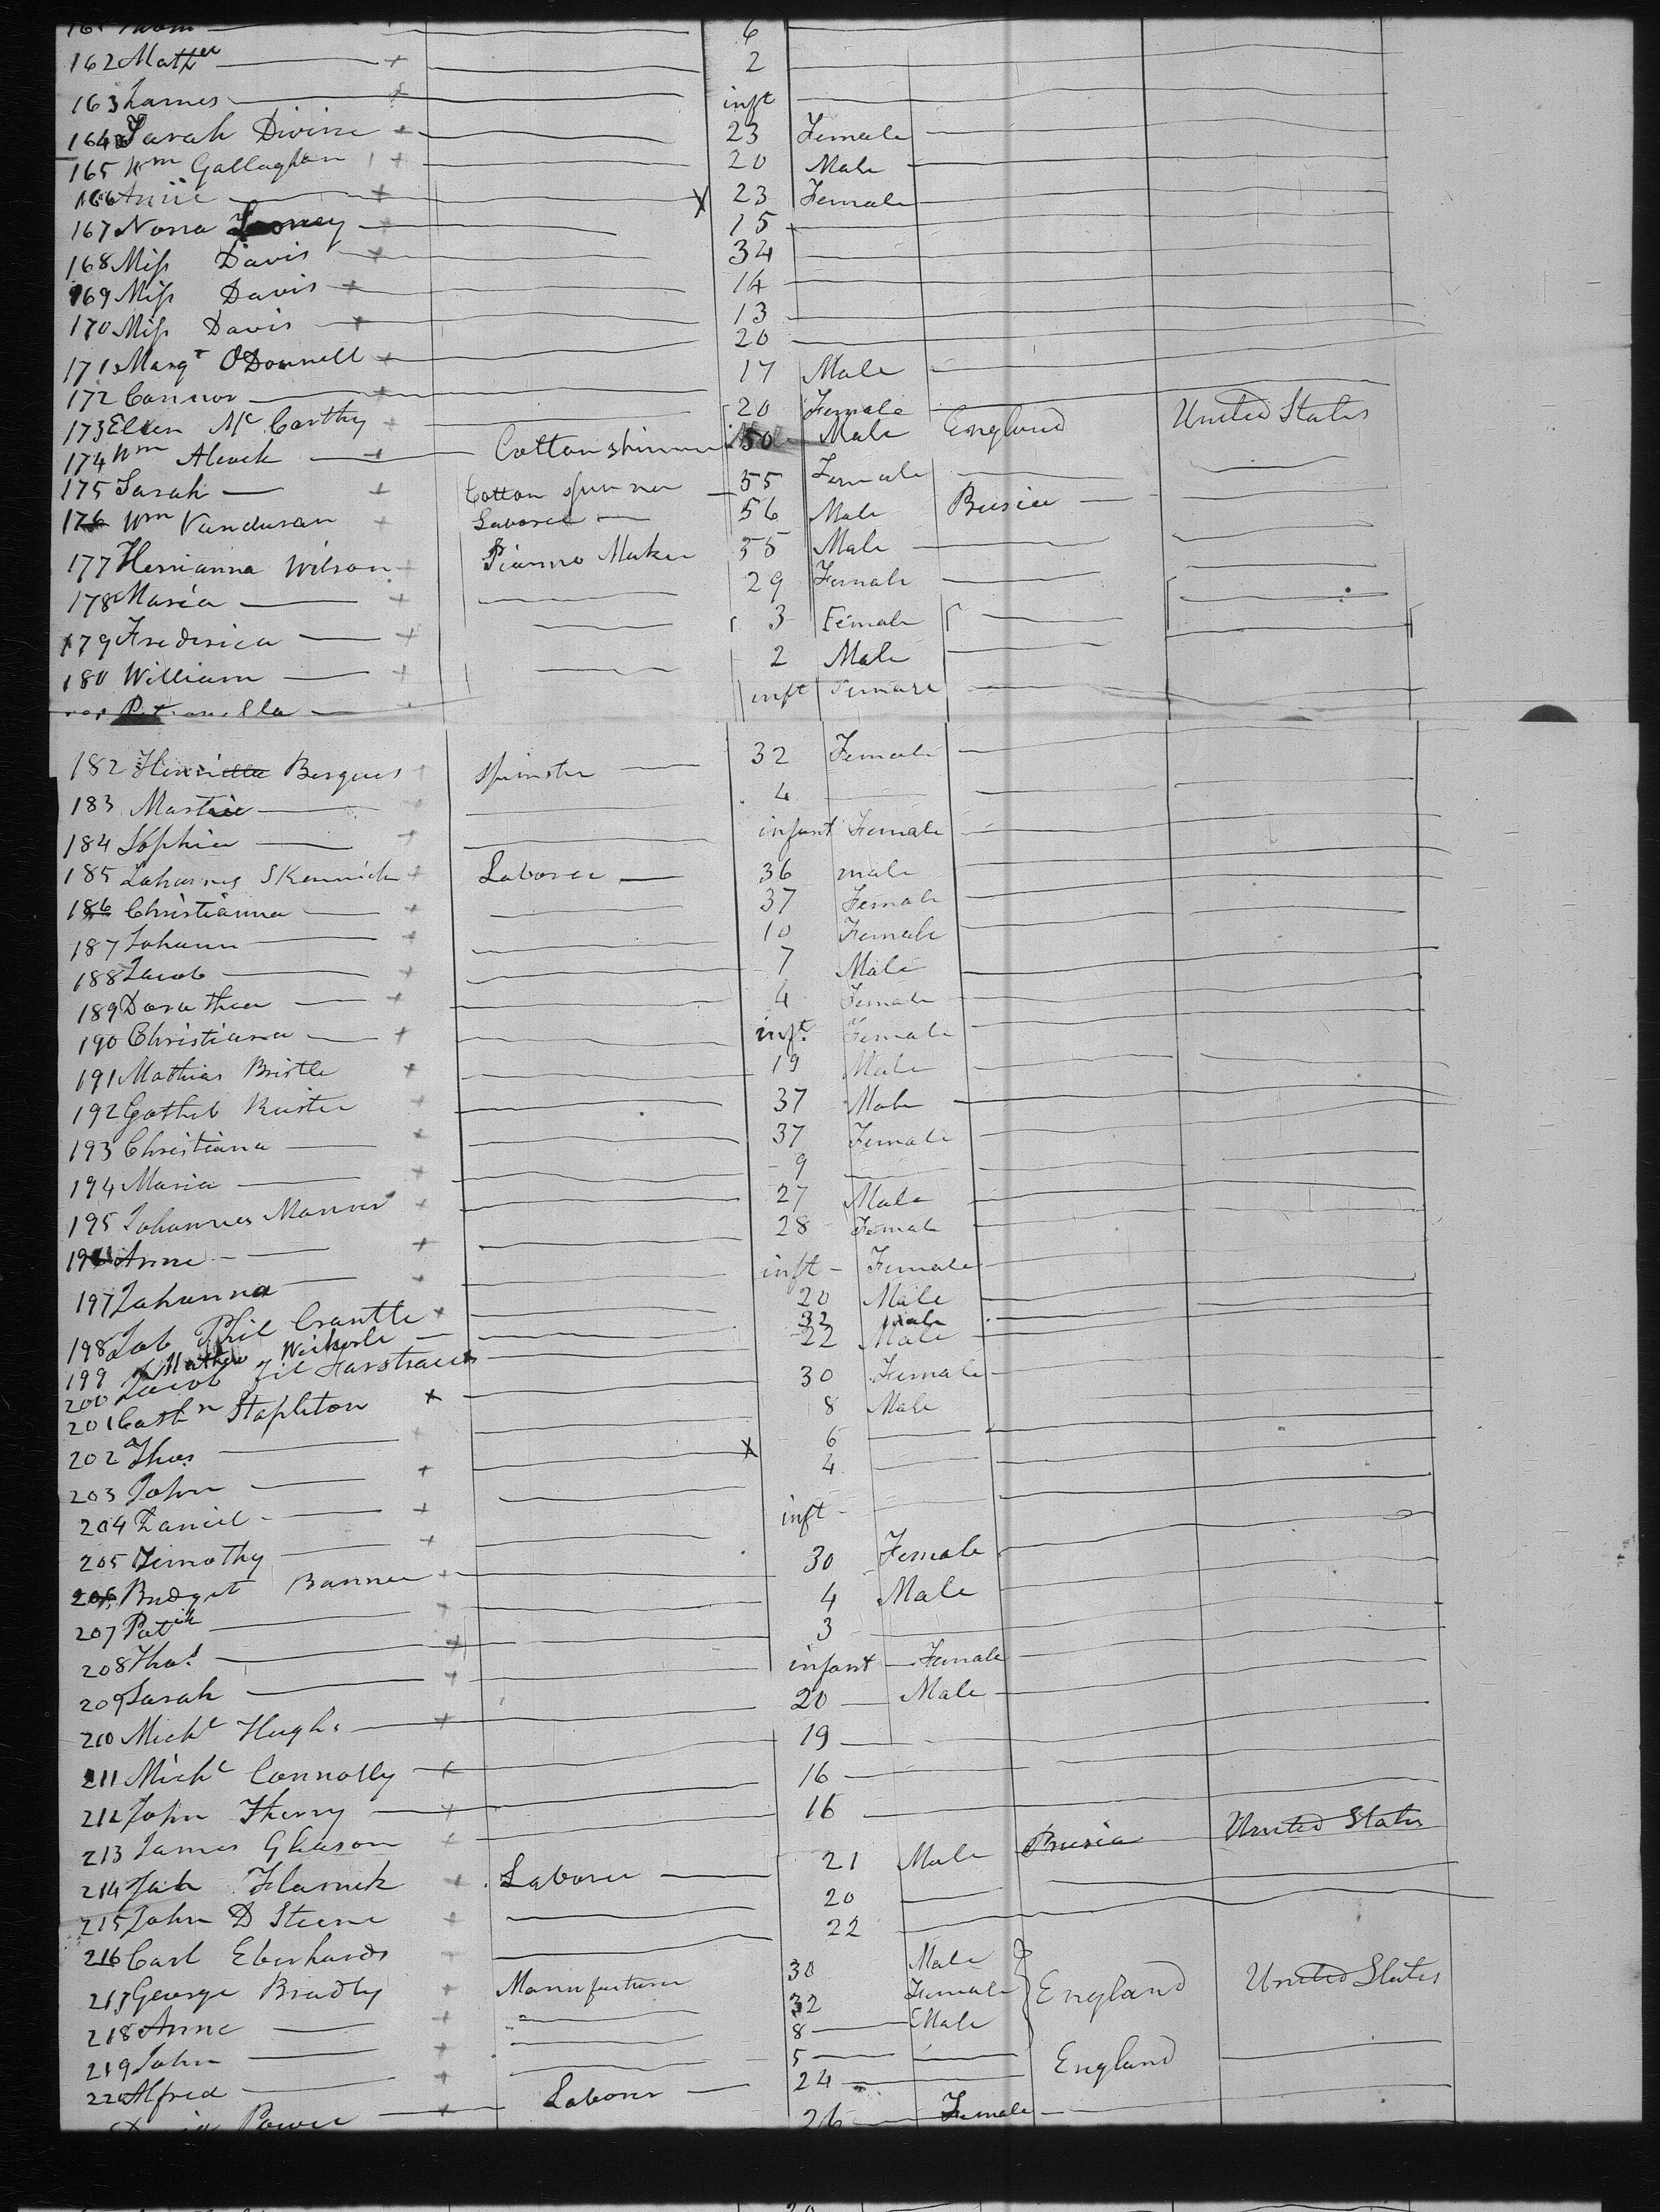 6
162 Mathw 2
163 James inft
164 Sarah Divine 23 Female
165 Wm Gallaghan 20 Male
166 Annie 23 Female
167 Nona 15
168 Miss Davis 34
169 Miss Davis 14
170 Miss Davis 13
171 Margt O'Donnell 20
172 Connor 17 Male
173 Ellen Mc Carthy 20 Female
174 Wm Alcock Cotton spinner 50 Male England United States
175 Sarah Cotton spinner 55 Female
176 Wm Vanduran Laborer 56 Male Prusia
177 Hermanna Wilson Pianno Maker 35 Male
178 Maria 29 Female
179 Frederica 3 Female
180 William 2 Male
inft Female
182 Berques Spinster 32 Female
183 4
184 Sophia infant Female
185 Johannes Skennich Laborer 36 male
186 Christianna 37 Female
187 Johann 10 Female
188 Jacob 7 Male
189 Dorathea 4 Female
190 Christiana inft. Female
191 Mathias Bristle 19 Male
192 Gotheb Kuster 37 Male
193 Christiana 37 Female
194 Maria 9
195 Johannes Manner 27 Male
196 Anne 28 Female
197 Johanna inft Female
198 Job Phil Crantle 20 Male
199 Mathew Weikerle 32 Male
200 Jacob Fil 22 Male
201 Cathn Stapleton 30 Female
202 Thos 8 Male
203 John 6
204 Daniel 4
205 Timothy inft
206 Bridget Banner 30 Female
207 Patik 4 Male
208 Thos 3
209 Sarah infant Female
210 Michl Hughs 20 Male
211 Michl Connolly 19
212 John Therry 16
213 James Gleason 16
214 Jab Flamek Laborer 21 Male Prusia United States
215 John D Steene 20
216 Carl Eberhards 22
217 George Bradly Manufacturer 30 Male England United States
218 Anne 32 Female
219 John 8 Male
220 Alfred 5
Power Laborer 24 England
26 Female